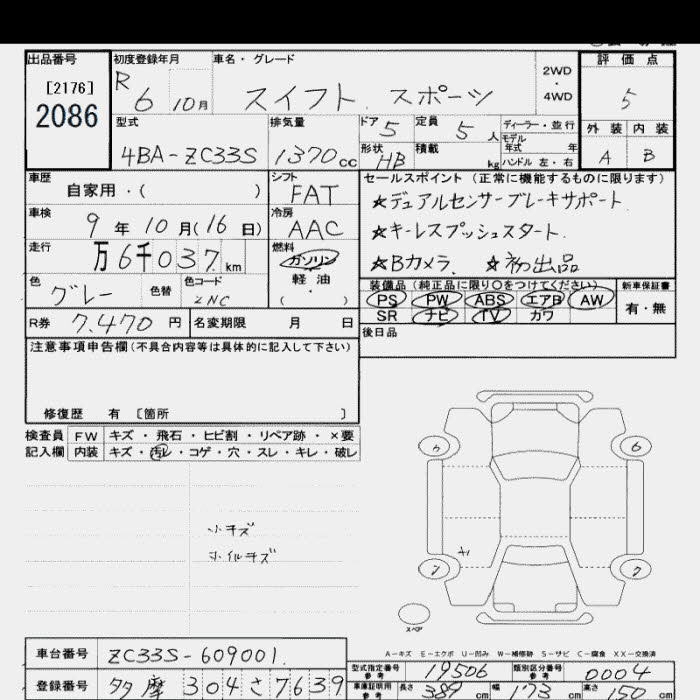 出品番号 初度登録年月 車名・グレード 2WD・4WD 評価点
[2176]
2086
R 6 10月 スイフト. スポーツ 5
型式 排気量 ドア 5 定員 5人 ディーラー・並行 外装 内装
モデル年式 年
4BA-ZC33S 1370cc 形状 HB 積載 kg ハンドル 左・右 A B
車歴 自家用・( ) シフト FAT セールスポイント(正常に機能するものに限ります)
☆デュアルセンサーブレーキサポート
車検 9年10月(16日) 冷房 AAC ☆キーレスプッシュスタート.
走行 万6千037km 燃料 ガソリン・軽油・( ) ☆Bカメラ. ☆初出品
色 グレー 色替 色コード ZNC 装備品(純正品に限り○をつけてください) 新車保証書
PS PW ABS エアB AW 有・無
SR ナビ TV カワ
R券 7.470円 名変期限 月 日 後日品
注意事項申告欄(不具合内容等は具体的に記入して下さい)
修復歴 有 [箇所 ]
検査員 FW キズ・飛石・ヒビ割・リペア跡・×要
記入欄 内装 キズ・汚レ・コゲ・穴・スレ・キレ・破レ
小キズ
ホイルキズ
7 6
7 7
スペア
A-キズ E-エクボ U-凹み W-補修跡 S-サビ C-腐食 XX-交換済
車台番号 ZC33S-609001.
型式指定番号 参考 19506 類別区分番号 参考 0004
登録番号 多摩 304 さ 7639
車庫証明用 参考 長さ 389cm 幅 173cm 高さ 150cm